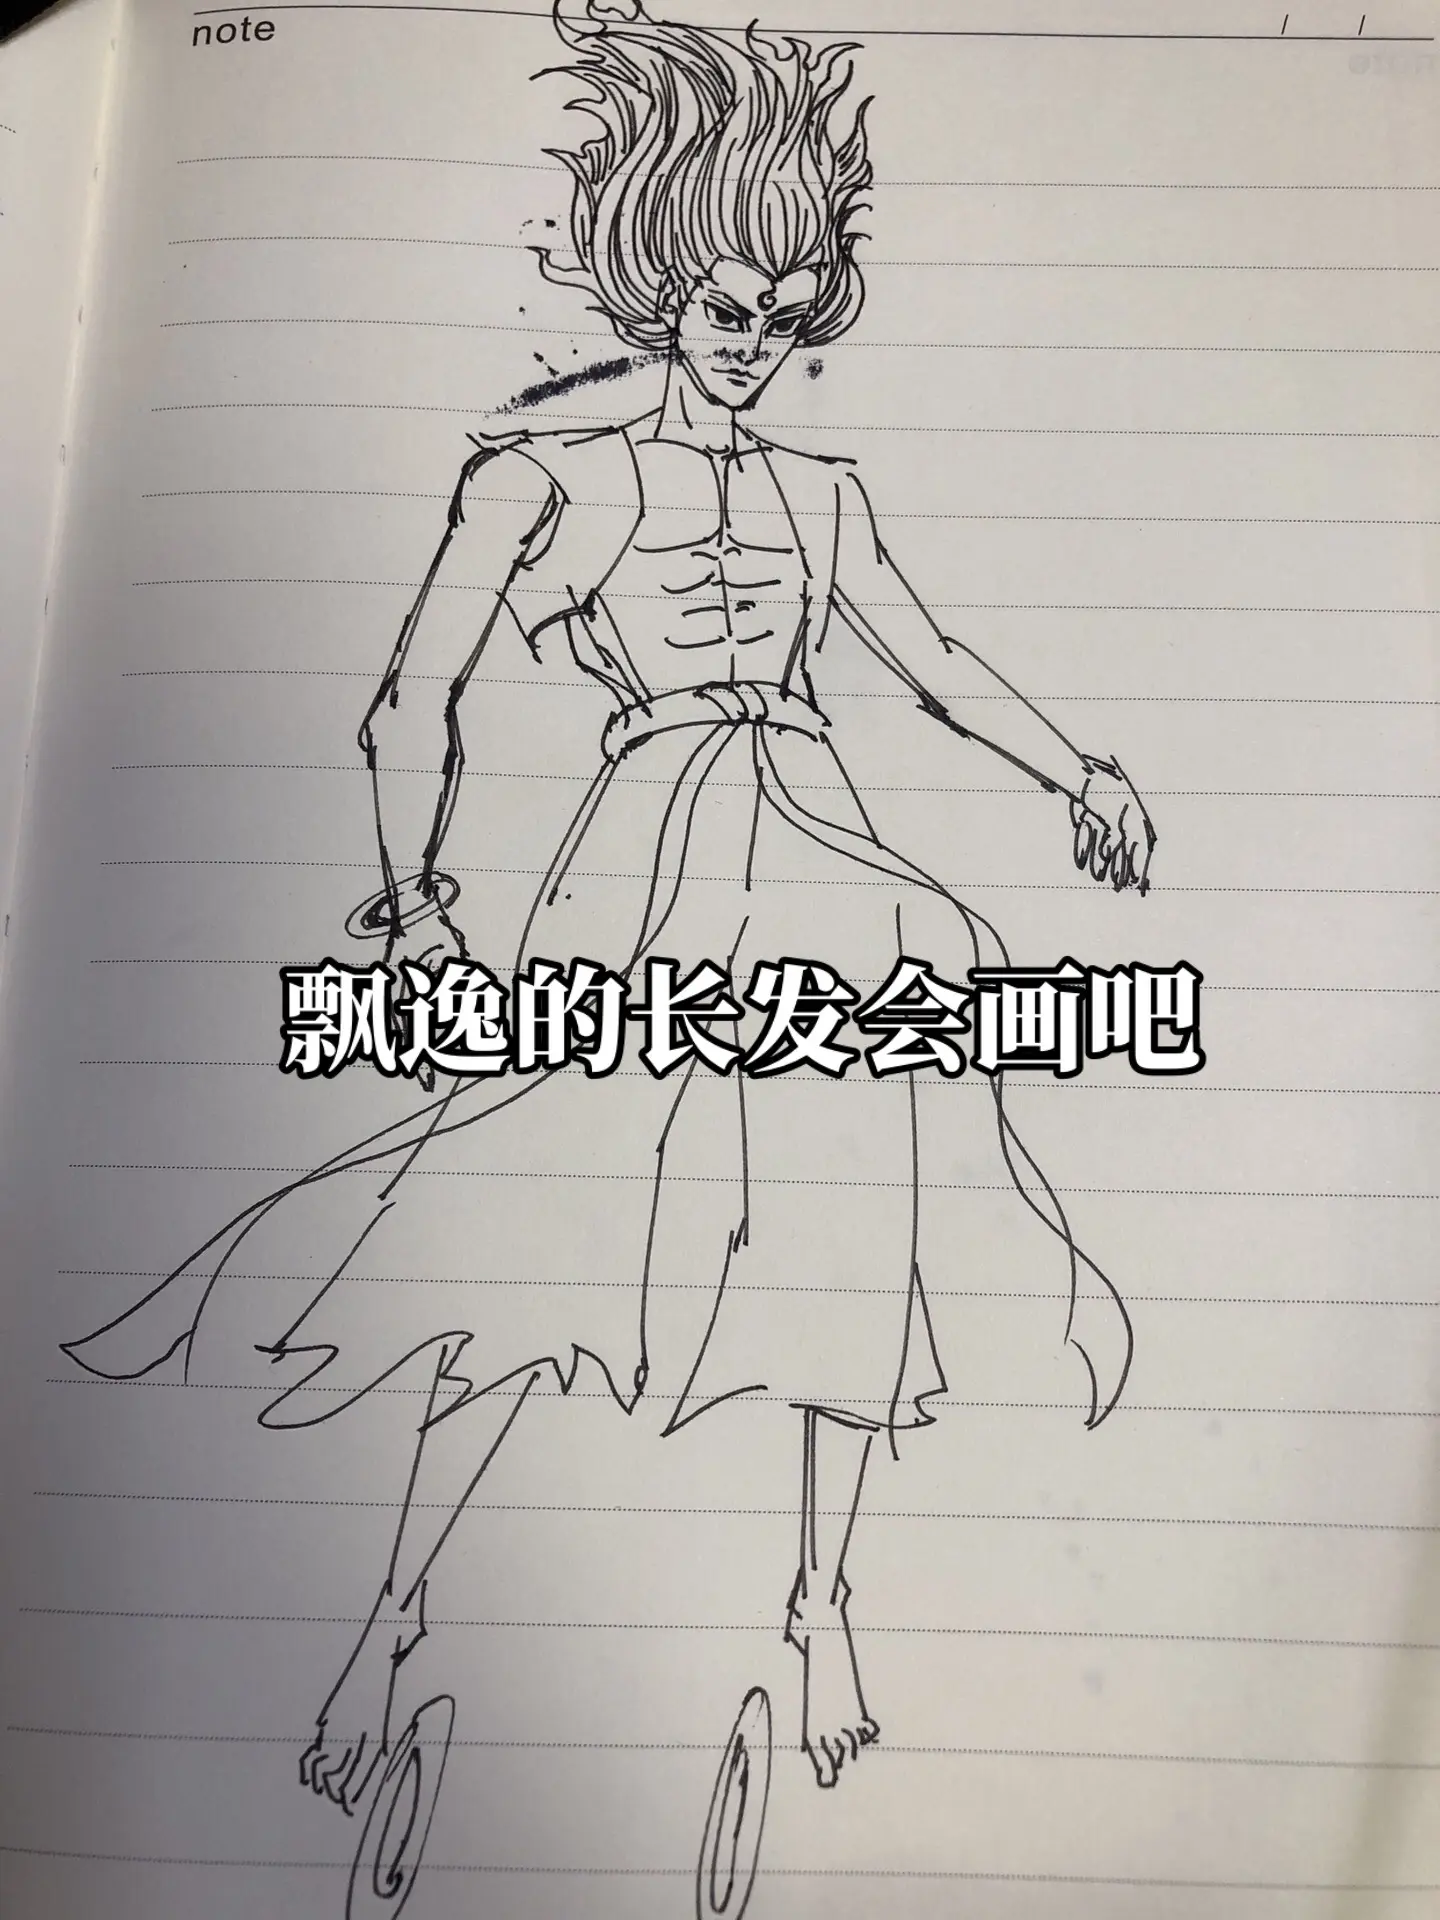 note
飘逸的长发会画吧